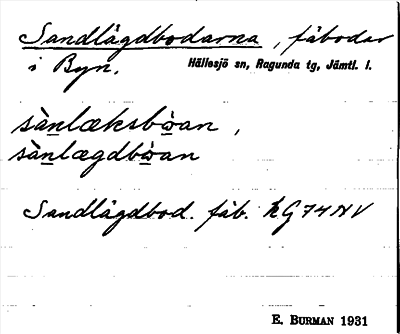 Sandlågdbodarna, fäbodar
i Byn. Hällesjö sn, Ragunda tg, Jämtl. l.
sànlæksbòan,
sànlægdbòan
Sandlågdbod. fäb. hG74NV
E. BURMAN 1931